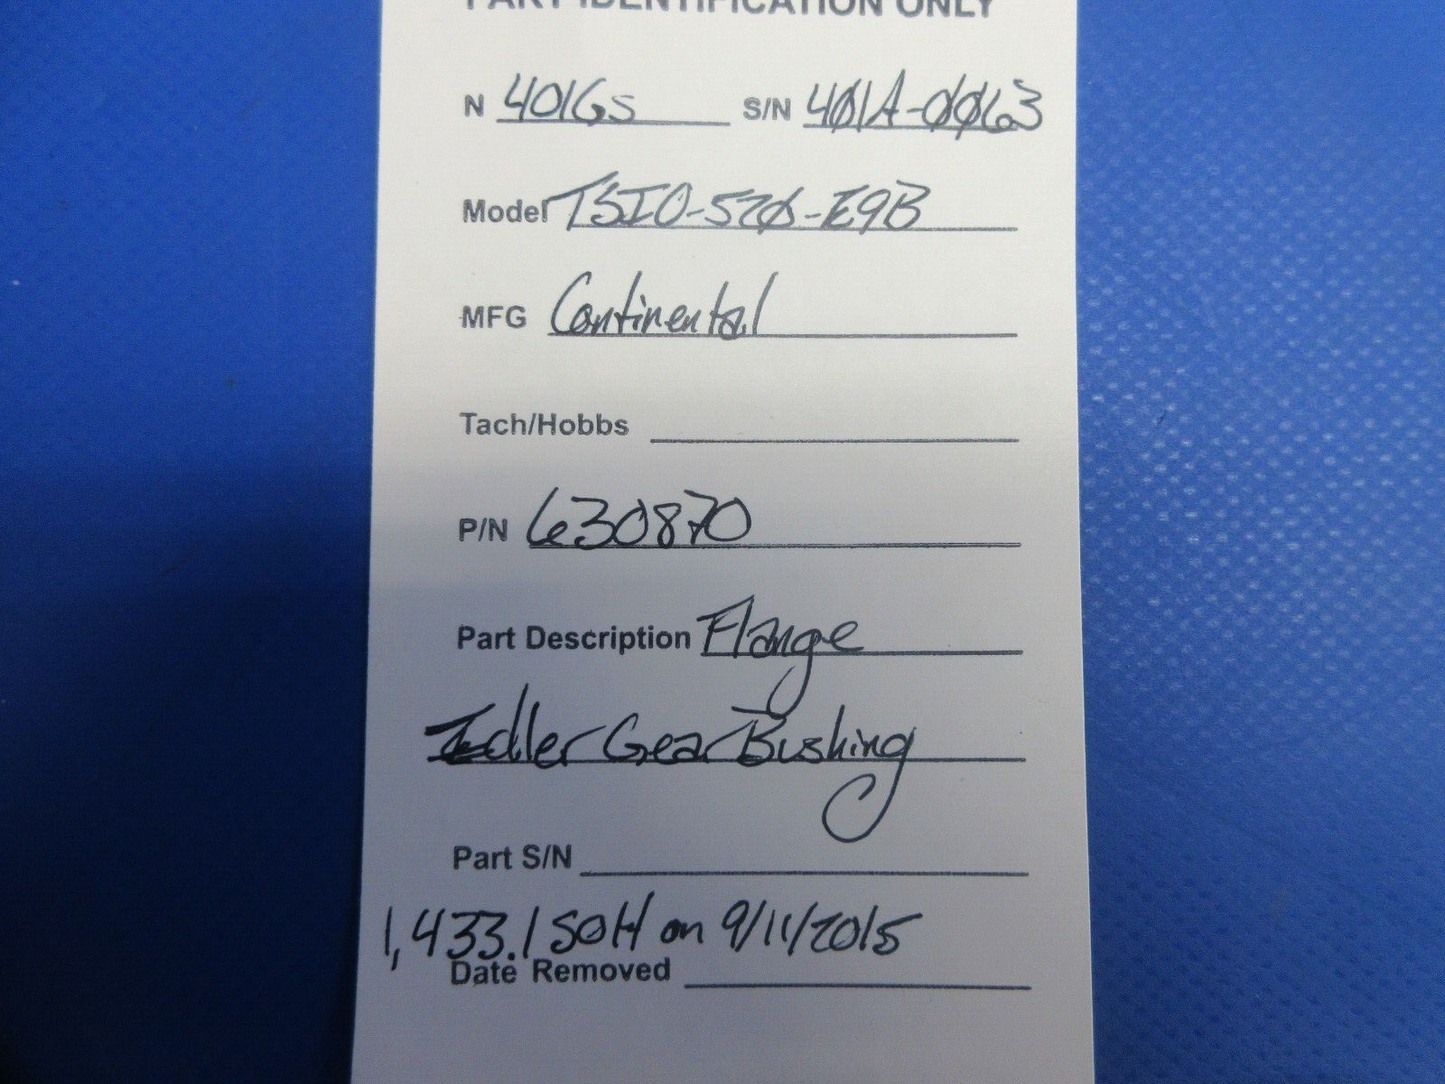 PART IDENTIFICATION ONLY
N 401GS S/N 401A-0063
Model TSIO-520-E9B
MFG Continental
Tach/Hobbs
P/N 630870
Part Description Flange
Idler Gear Bushing
Part S/N
1,433.1 SOH on 9/11/2015
Date Removed